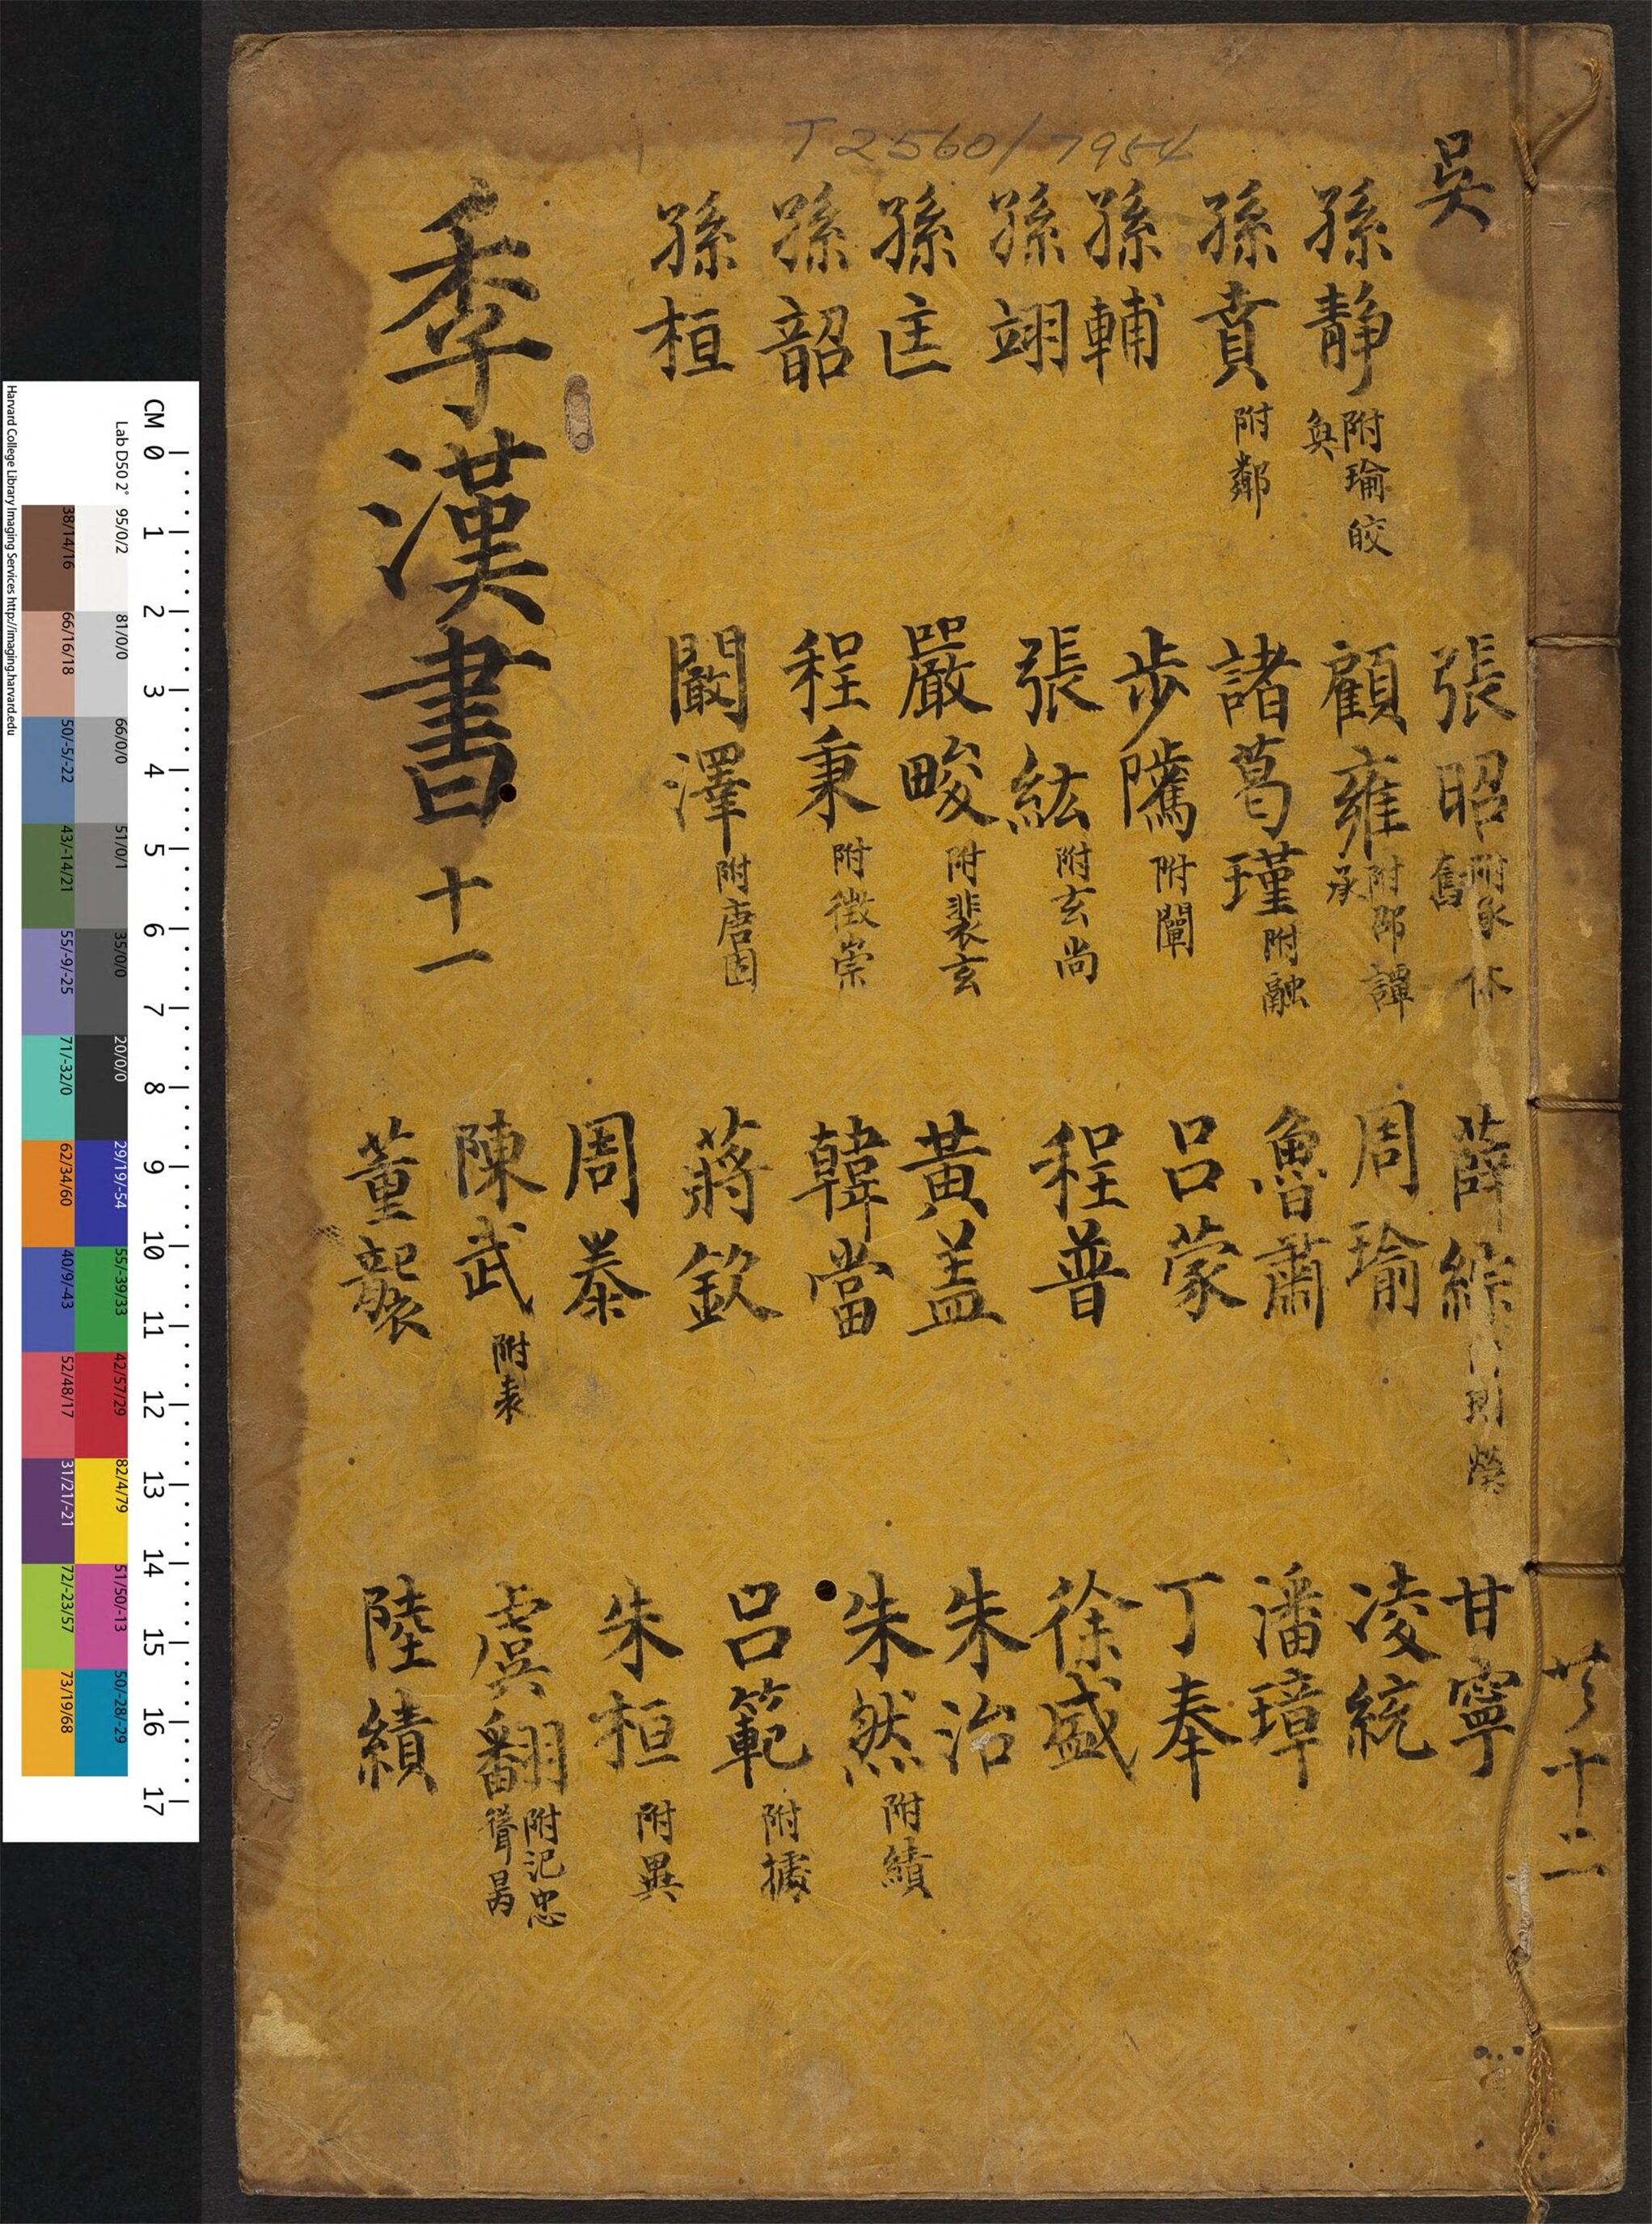 T2560/7954
吳
孫靜 附瑜 皎 奐
孫賁 附鄰
孫輔
孫翊
孫匡
孫韶
孫桓
張昭 附承 休 奮
顧雍 附邵 譚 承
諸葛瑾 附融
步隲 附闡
張紘 附玄 尚
嚴畯 附裴玄
程秉 附徵崇
闞澤 附唐固
薛綜 珝 瑩
周瑜
魯肅
呂蒙
程普
黃盖
韓當
蔣欽
周泰
陳武 附表
董襲
甘寧
凌統
潘璋
丁奉
徐盛
朱治
朱然 附績
呂範 附據
朱桓 附異
虞翻 附汜 忠 聳 昺
陸績
季漢書 十一
共十二
CM 0 1 2 3 4 5 6 7 8 9 10 11 12 13 14 15 16 17
Lab D50 2° 95/0/2 81/0/0 66/0/0 51/0/1 35/0/0 20/0/0 29/19/-54 55/-39/33 42/57/29 82/4/79 51/50/-13 50/-28/-29
38/14/16 66/16/18 50/-5/-22 43/-14/21 55/-9/-25 71/-32/0 62/34/60 40/9/-43 52/48/17 31/21/-21 72/-23/57 73/19/68
Harvard College Library Imaging Services http://imaging.harvard.edu